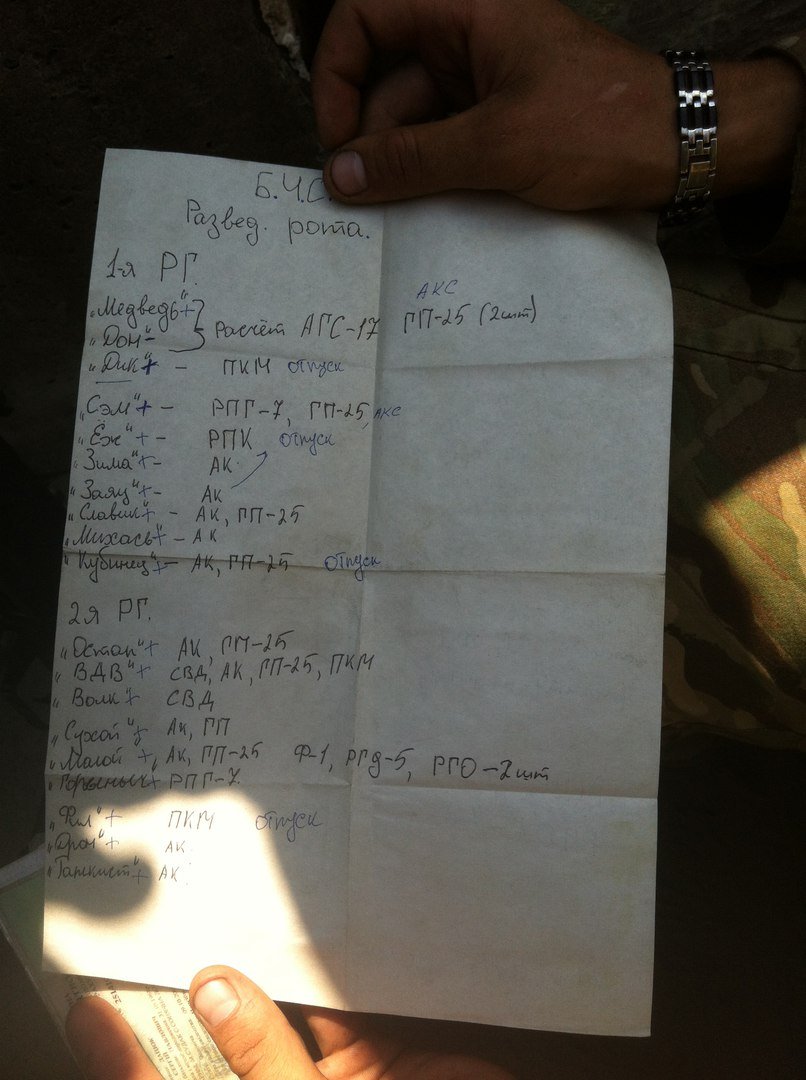 Б.Ч.С.
Развед. рота.
1-я РГ.
АКС
"Медведь"+
"Дон"- } расчёт АГС-17 ГП-25 (2шт)
"Дик"+ - ПКМ отпуск
"Сэм"+ - РПГ-7, ГП-25, АКС
"Ёж"+ - РПК отпуск
"Зима"+- АК
"Заяц"+- АК
"Славик"+ - АК, ГП-25
"Михась"+- АК
"Кубинец"+- АК, ГП-25 отпуск
2я РГ.
"Остап"+ АК, ГП-25
"ВДВ"+ СВД, АК, ГП-25, ПКМ
"Волк"+ СВД
"Сухой"+ АК, ГП
"Малой"+, АК, ГП-25 Ф-1, РГД-5, РГО-2шт
"Горыныч"+ РПГ-7
"Фил"+ ПКМ отпуск
"Дрон"+ АК
"Танкист"+ АК